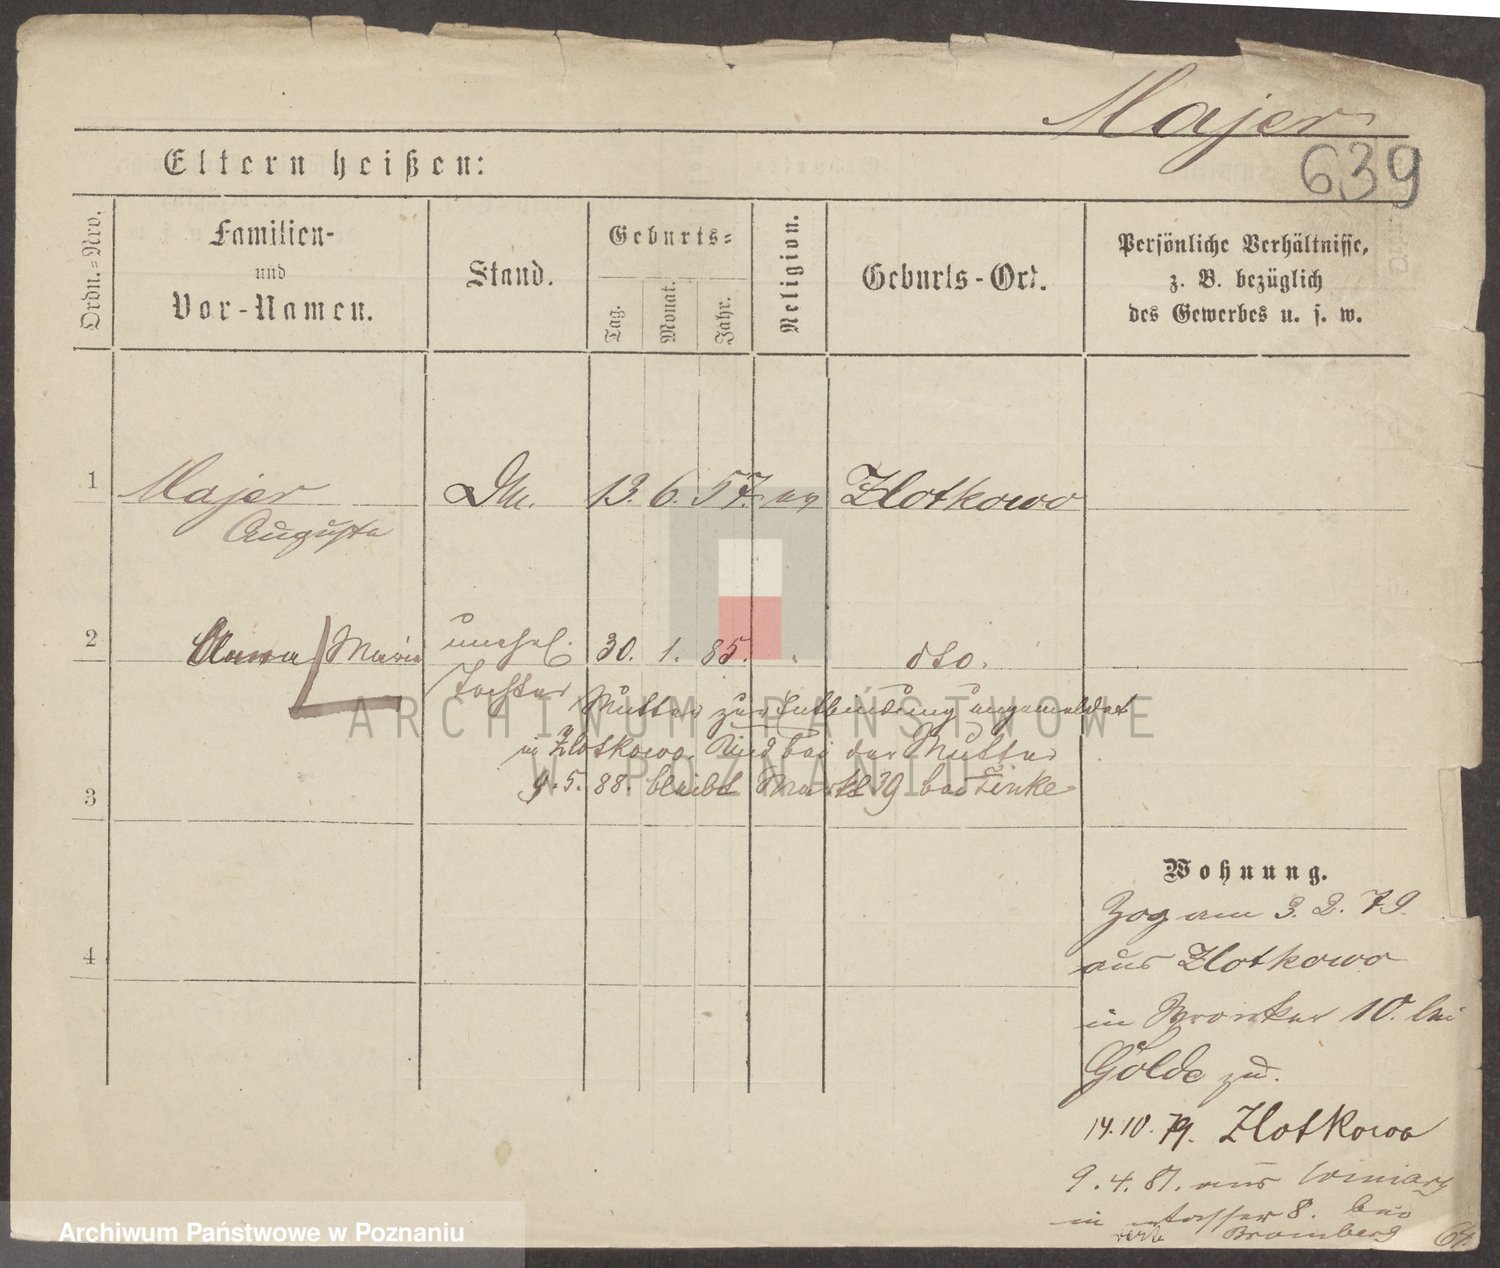 Majer
639
Eltern heißen:
Ordn.-Nro.
Familien-
und
Vor-Namen.
Stand.
Geburts-
Tag.
Monat.
Jahr.
Religion.
Geburts-Ort.
Persönliche Verhältnisse,
z. B. bezüglich
des Gewerbes u. s. w.
1 Majer 13. 6. 57. ev Zlotkowo
Auguste
2 Anna Maria unehel. 30. 1. 85. dto.
Tochter
Mutter zur Entbindung angemeldet
in Zlotkowo. Kind bei der Mutter
3 9. 5. 88. bleibt Markt 39 bei Finke
4
Wohnung.
Zog am 3. 2. 79.
aus Zlotkowo
in Wronker 10. bei
Gölde zu.
14. 10. 79. Zlotkowo
9. 4. 81. aus
in 8. bei
Bromberg
ARCHIWUM PAŃSTWOWE
W POZNANIU
Archiwum Państwowe w Poznaniu